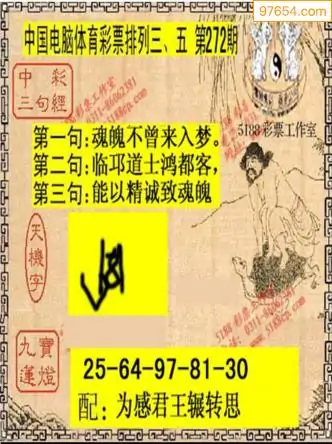 97654.com
中国电脑体育彩票排列三、五 第272期
中彩
三句經
5188 彩票工作室
第一句:魂魄不曾来入梦。
第二句:临邛道士鸿都客,
第三句:能以精诚致魂魄
天機字
九寶蓮燈
25-64-97-81-30
配:为感君王辗转思